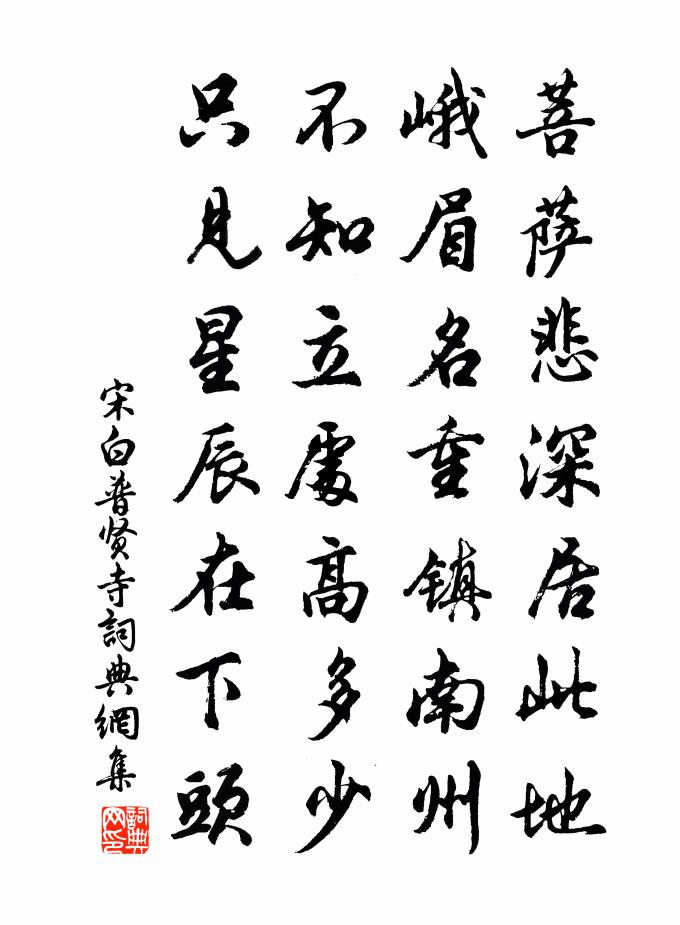 菩萨悲深居此地
峨眉名重镇南州
不知立處高多少
只見星辰在下頭
宋白普贤寺詞典網集
詞典
网印